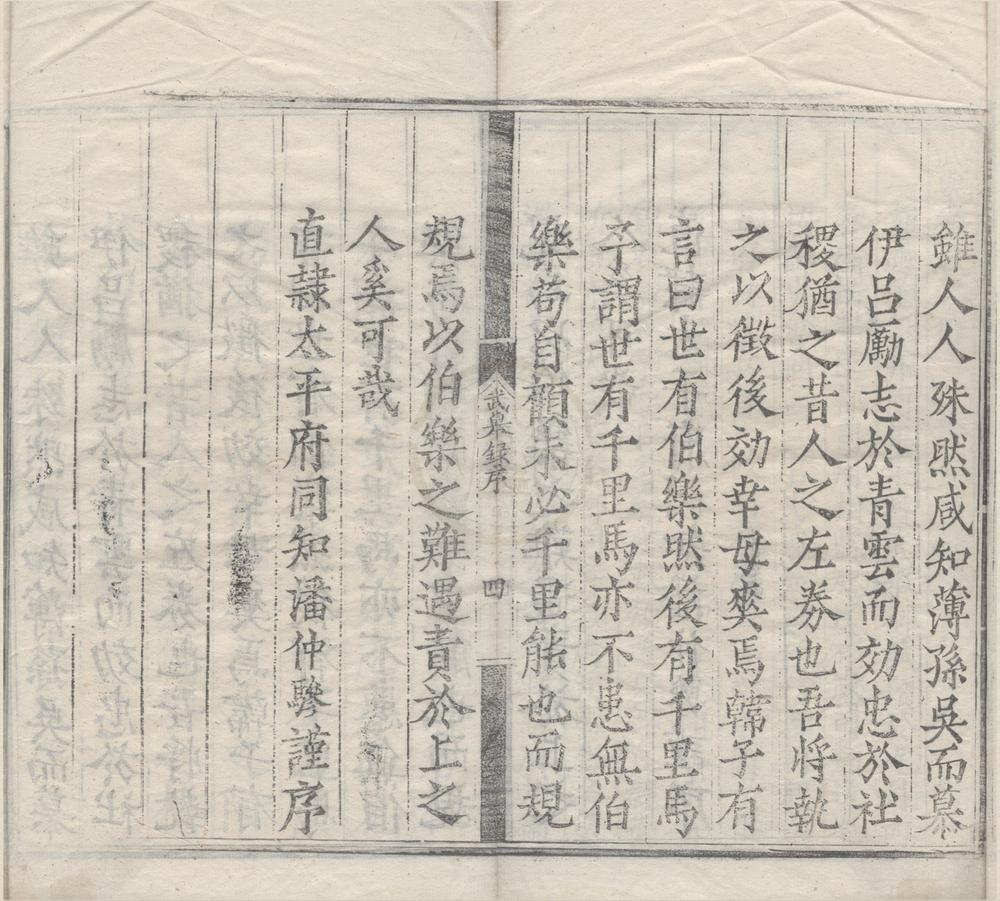 雖人人殊然咸知薄孫吳而慕
伊呂勵志於青雲而効忠於社
稷猶之昔人之左券也吾將執
之以徵後効幸毋爽焉韓子有
言曰世有伯樂然後有千里馬
予謂世有千里馬亦不患無伯
樂苟自顧未必千里能也而規
武皋錄序
四
規焉以伯樂之難遇責於上之
人奚可哉
直隷太平府同知潘仲驂謹序